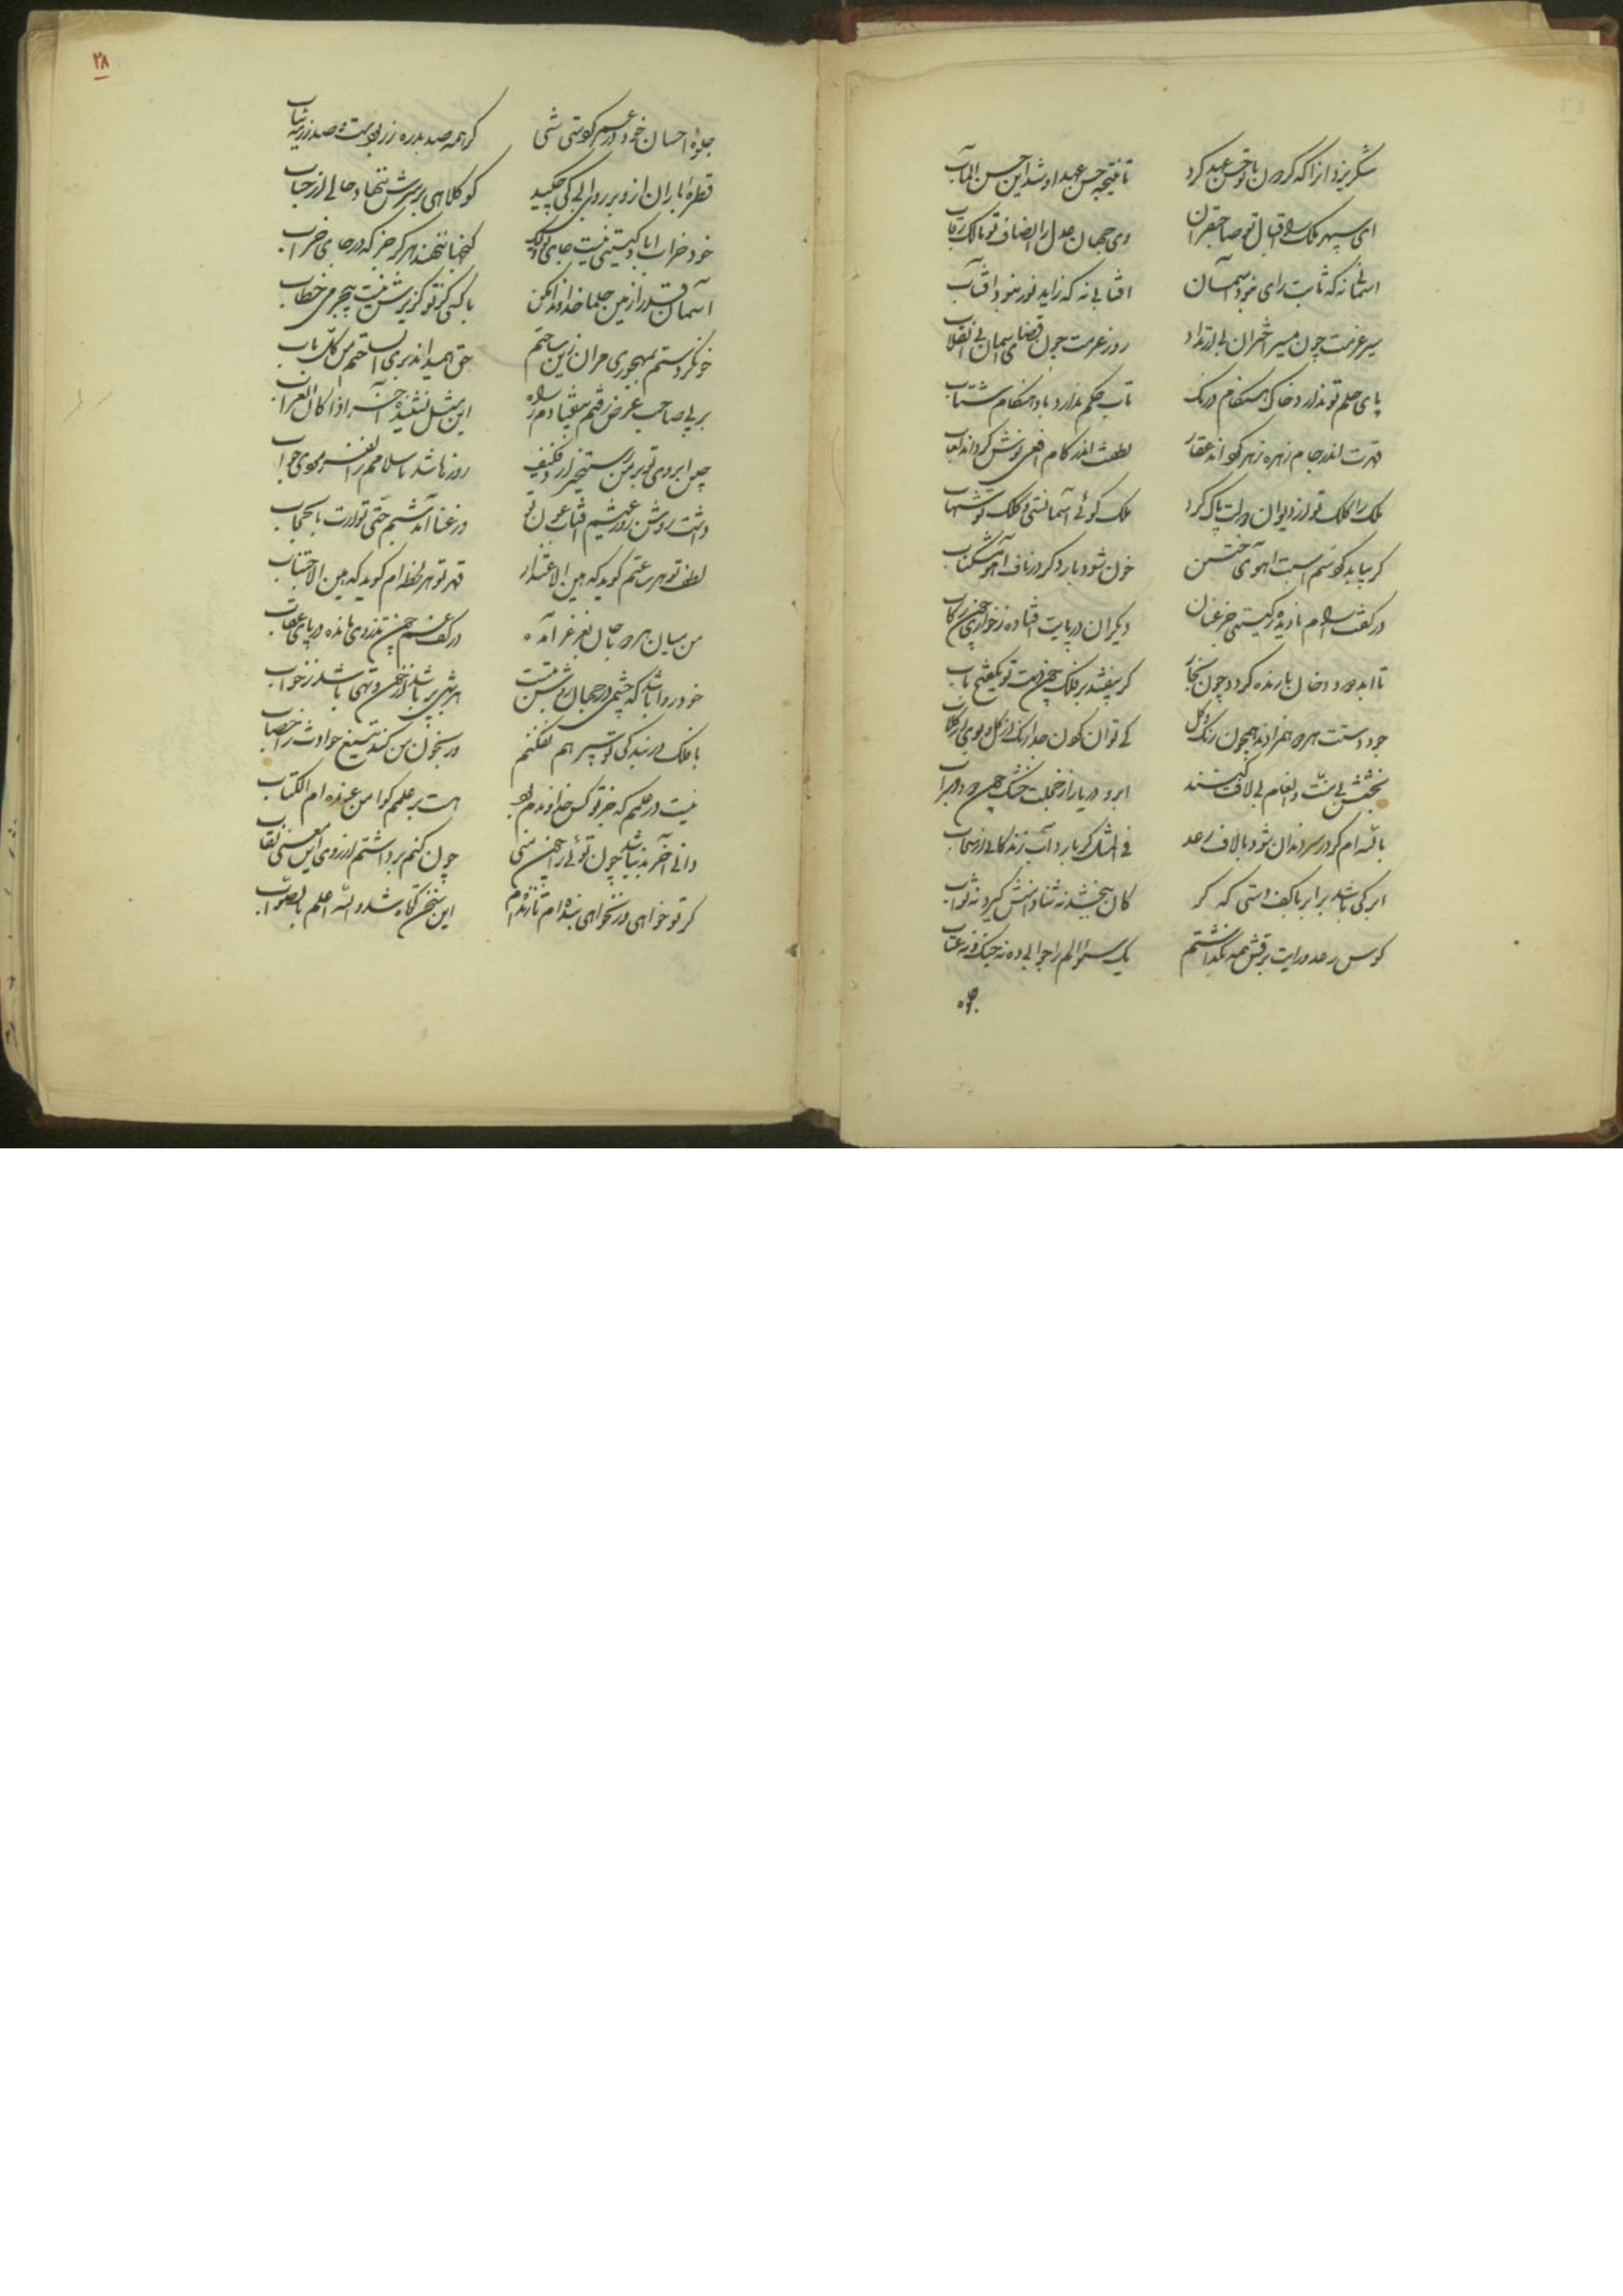 شکر یزدانرا که گردون با تو حسن عهد کرد تا نتیجه حسن عهد او شد این حسن المآب
ای سپهر ملک را اقبال تو صاحبقران وی جهان عدل را انصاف تو مالک رقاب
آسمانی نه که ثابت رای نبود آسمان آفتابی نه که زاید نور نبود آفتاب
سیر عزمت چون مسیر اختران بی ارتداد روز عزمت چون قضای آسمان بی انقلاب
پای حلم تو ندارد خاک هنگام درنک تاب حکم تو ندارد باد هنگام شتاب
قهرت اندر جام زهره زهر گرداند عقار لطفت اندر کام افعی نوش گرداند لعاب
ملک را کلک تو از دیوان دولت پاک کرد ملک گوئی آسمانستی و کلک تو شهاب
گر بیابد گوسم اسبت آهوی ختن خون شود بار دگر در ناف آهو مشکناب
در کفت اسلام نادیده گیتی جز عنان دیگران در پایت افتاده ز خواری چون رکاب
تا ابد دود و دخان بارنده گردد چون بخار گر بیفتد بر فلک چون دست تو یک فتح باب
جود و دستت هر دو همزادند همچون رنگ و گل کی توان کردن جدا رنگ از گل و بوی از گلاب
بخشش بی منت و انعام بی لافت کنند ابر و دریا را ز خجلت خشک چون دود و سراب
بالله ار گردر سر دندان شود با لاف رعد فی المثل گر بارد آب زندگانی از سحاب
ابر کی باشد برابر با کف دستی که گر کان ببخشد نه ثنا دامنش گیرد نه ثواب
کوس رعد و رایت برقش همه بگذاشتم یک سؤالم را جوابی ده نه جنگ و نه عتاب
جلوه
۲۸
جلوه احسان خود در عمر کو متی شی گر همه صد بدره زر بودست و صد رزمه ثیاب
قطره باران ازو بر روی آبی کی چکید کو کلاهی بر سرش ننهاد حالی از حباب
خود خراب آباد گیتی نیست جای تو ولیک گنجها ننهند هرگز جز که در جای خراب
آسمان قدرا زمین حلما خداوندا مکن با کسی کز تو گزیرش نیست چندین خطاب
خو نکردستم بمهجوری مران زین ساحتم حق همیداند بری استحقم من کل باب
بر پی صاحب غرض رفتم بیفتادم ز راه این مثل نشنیده آخر اذا کان الغراب
چین ابروی تو بر من رستخیز آرد فکیف روزها شد تا سلامم را نفرمودی جواب
داشت روشن روز عیشم آفتاب عون تو وز عنا آمد شبم حتی توارت بالحجاب
لطف تو هر ساعتم گوید که هین الاعتذار قهر تو هر لحظه ام گوید که هین الاجتناب
من میان هر دو با جانی بغرغر آمده در کف غم چون تذروی مانده در پای عقاب
خود روا باشد که چشمی در جهان روشن نیست هر شبی پر باشد از خون و تهی باشد ز خواب
با فلک در بندگی تو سپر هم نفکنم ور بخون من کند تیغ حوادث را خضاب
نیست در علمم که جز تو کس خداوندم بود هست بر علمم گوا من عنده ام الکتاب
دانی آخر بد نباشد چون توئی را چون منی چون کنم برداشتم از روی این معنی نقاب
گر تو خواهی ور نخواهی بنده ام تا زنده ام این سخن کوتاه شد والله اعلم بالصواب